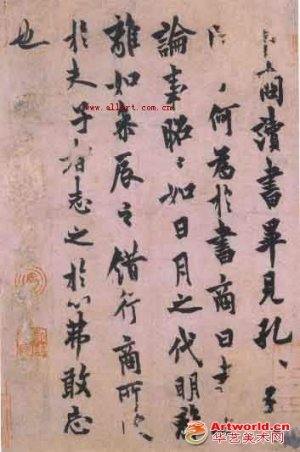 卜商讀書畢見孔、子
何為於書商曰書
論事昭々如日月之代明離
離如參辰之錯行商所受
於夫子者志之於心弗敢忘
也
Artworld.cn
华艺美术网